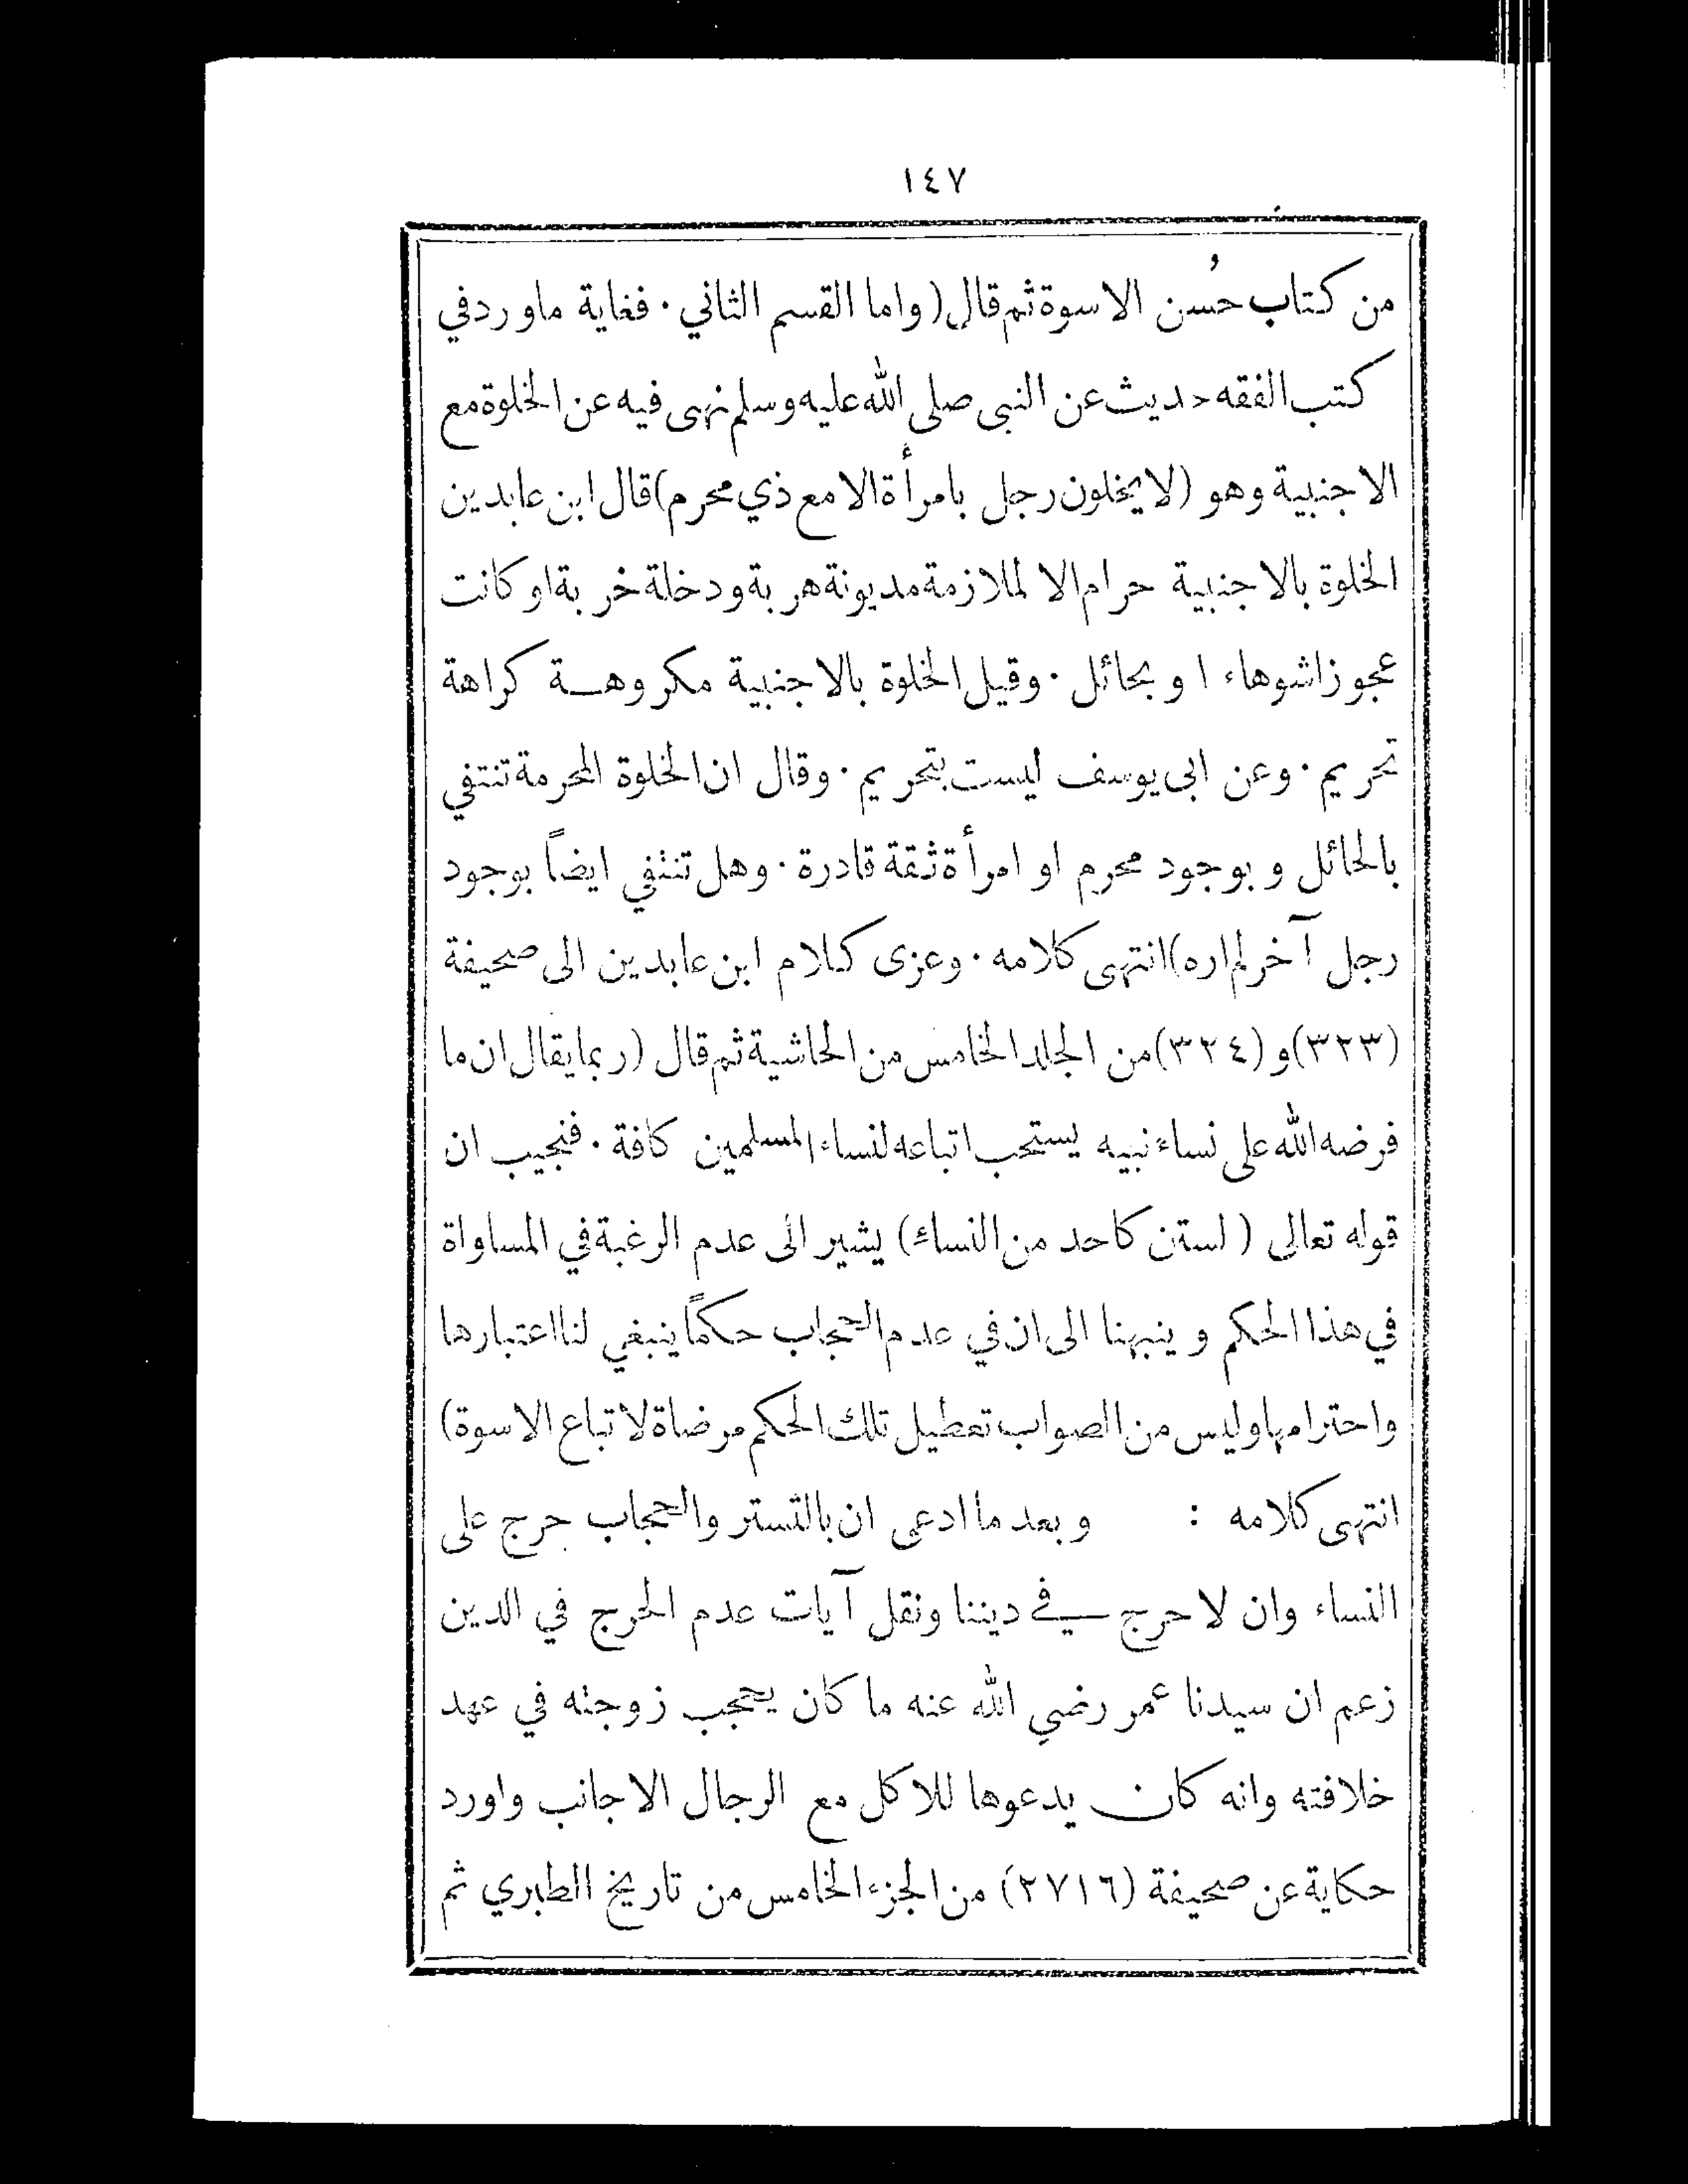 ١٤٧
من كتاب حُسن الاسوة ثم قال (واما القسم الثاني . فغاية ماورد في
كتب الفقه حديث عن النبى صلى الله عليه وسلم نهى فيه عن الخلوة مع
الاجنبية وهو (لا يخلون رجل بامرأة الا مع ذي محرم) قال ابن عابدين
الخلوة بالاجنبية حرام الا لملازمة مديونة هربة ودخلة خربة او كانت
عجوزا شوهاء او بحائل . وقيل الخلوة بالاجنبية مكروهة كراهة
تحريم . وعن ابى يوسف ليست بتحريم . وقال ان الخلوة المحرمة تنتفي
بالحائل وبوجود محرم او امرأة ثقة قادرة . وهل تنتفي ايضاً بوجود
رجل آخر لم اره) انتهى كلامه . وعزى كلام ابن عابدين الى صحيفة
(٣٢٣) و (٣٢٤) من الجلد الخامس من الحاشية ثم قال (ربما يقال ان ما
فرضه الله على نساء نبيه يستحب اتباعه لنساء المسلمين كافة . فنجيب ان
قوله تعالى (لستن كاحد من النساء) يشير الى عدم الرغبة في المساواة
في هذا الحكم وينبهنا الى ان في عدم الحجاب حكماً ينبغي لنا اعتبارها
واحترامها وليس من الصواب تعطيل تلك الحكم مرضاة لاتباع الاسوة)
انتهى كلامه : وبعد ما ادعى ان بالتستر والحجاب حرج على
النساء وان لا حرج في ديننا ونقل آيات عدم الحرج في الدين
زعم ان سيدنا عمر رضي الله عنه ما كان يحجب زوجته في عهد
خلافته وانه كان يدعوها للاكل مع الرجال الاجانب واورد
حكاية عن صحيفة (٢٧١٦) من الجزء الخامس من تاريخ الطبري ثم